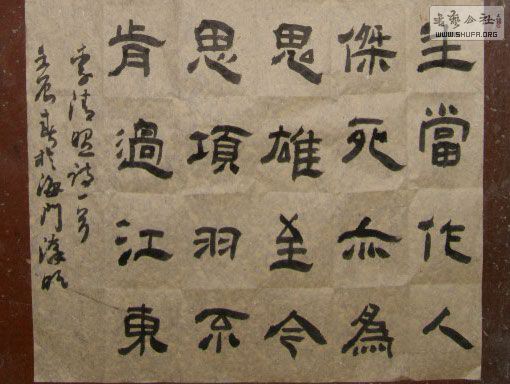 生當作人
傑死亦為
鬼雄至今
思項羽不
肯過江東
李清照詩一首
壬辰春於海門
书艺公社
WWW.SHUFA.ORG